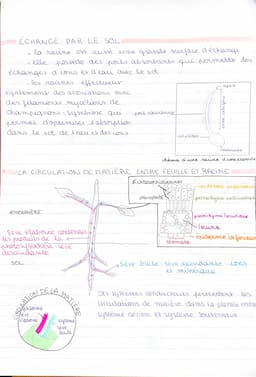 ÉCHANGE PAR LE SOL
- la racine est aussi une grande surface d'échange
- elle possède des poils absorbants qui permettent les
échanges d'ions et d'eau avec le sol.
- les racines effectuent
également des associations avec
des filaments mycéliens de
champignons : symbiose qui
permet d'optimiser l'absorption
dans le sol de l'eau et des ions
LA CIRCULATION DE MATIÈRE ENTRE FEUILLE ET RACINE
ATMOSPHÈRE
sève élaborée contenant
les produits de la
photosynthèse sève
descendante
SOL
sève brute : sève ascendante ions
et minéraux
épiderme supérieur
parenchyme
parenchyme lacuneux
lacune
épiderme inférieur
stomate
CIRCULATION DE LA MATIÈRE
système
sève
brute
Des systèmes conducteurs permettent les
circulations de matière dans la plante entre
système aérien et système souterrain